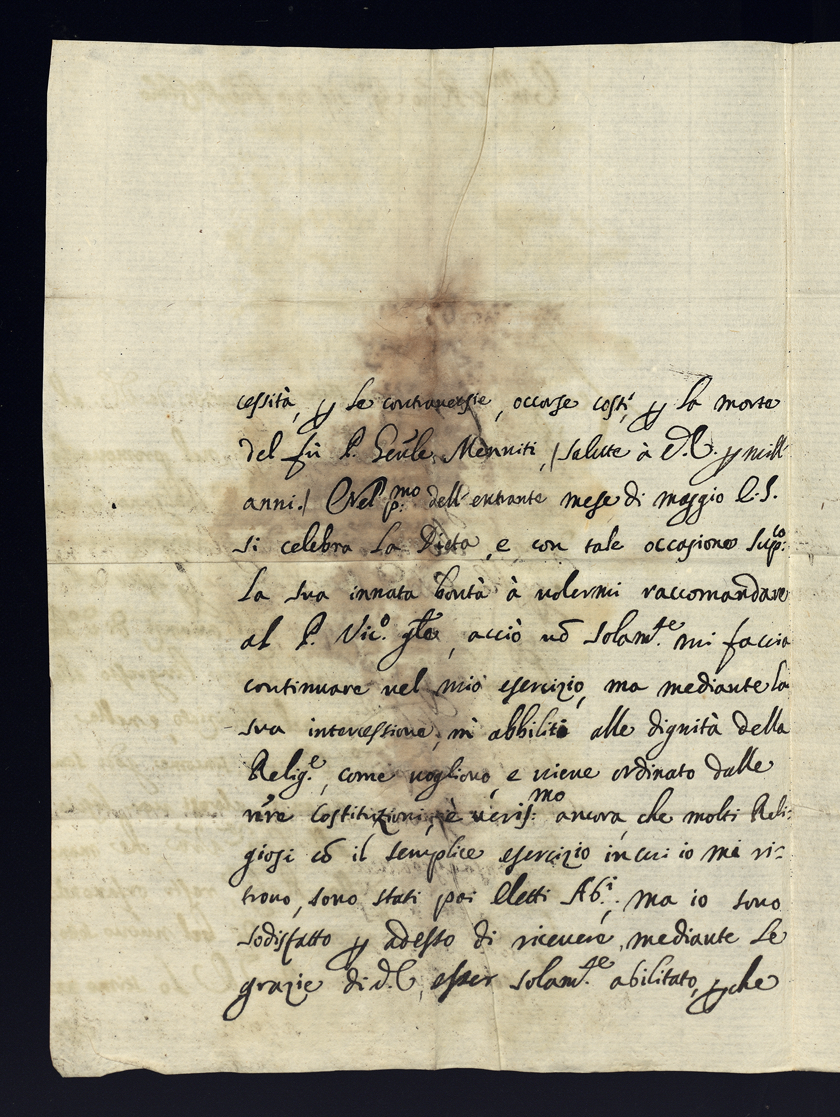 cessità, p le controversie, occorse costì, p la morte
del fù P. Gen̄le Menniti, /salute à V.S. p mill'
anni./ Nel p:mo dell'entrante mese di maggio
si celebra la Dieta, e con tale occasione sup:co
la sua innata bontà à volermi raccomandare
al P. Vic.o gn̄le, acciò nō solam.te mi faccia
continuare nel mio esercizio, ma mediante la
sua intercessione, m'abbiliti alle dignità della
Relig.e, come vogliono, e viene ordinato dalle
nr̄e Costituzioni, è veris:mo ancora che molti Reli:
giosi cō il semplice esercizio in cui io mi ri:
trovo, sono stati poi eletti Ab.i, ma io sono
sodisfatto p adesso di ricevere, mediante le
grazie di V.S, esser solam.te abilitato, p che